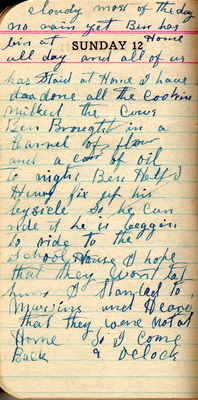 cloudy most of the day
no rain yet Ben has
bin at Home
SUNDAY 12
all day and all of us
has Staid at Home I have
done all the Cookin
milked the Cows
Ben Brought in a
Barrel of flour
and a can of oil
to night Ben Help
Henry fix up his
bysicle So he can
ride it he is beggin
to ride to the
School House I hope
that they wont let
him I Started to
and Heard
that they were not at
Home So I Come
Back 9 Oclock